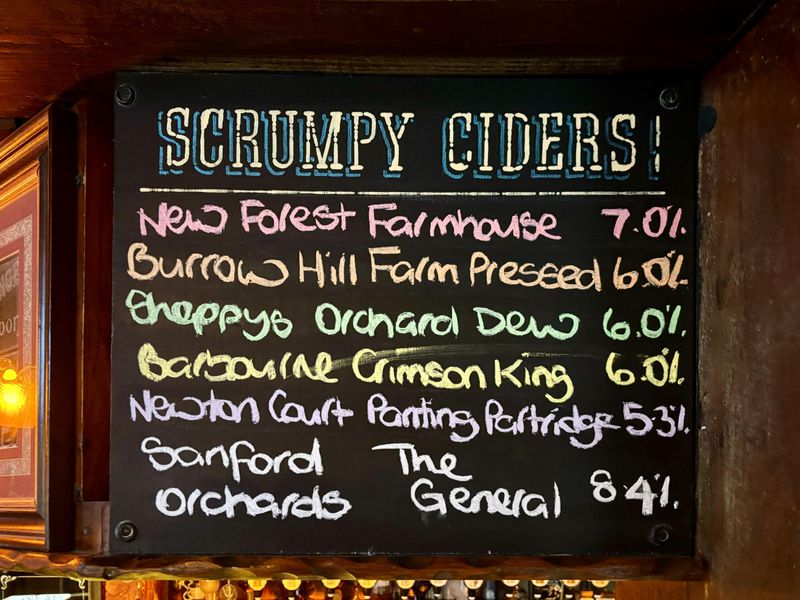 SCRUMPY CIDERS!
New Forest Farmhouse 7.0%
Burrow Hill Farm Pressed 6.0%
Sheppys Orchard Dew 6.0%
Barbourne Crimson King 6.0%
Newton Court Panting Partridge 5.3%
Sanford The
Orchards General 8.4%